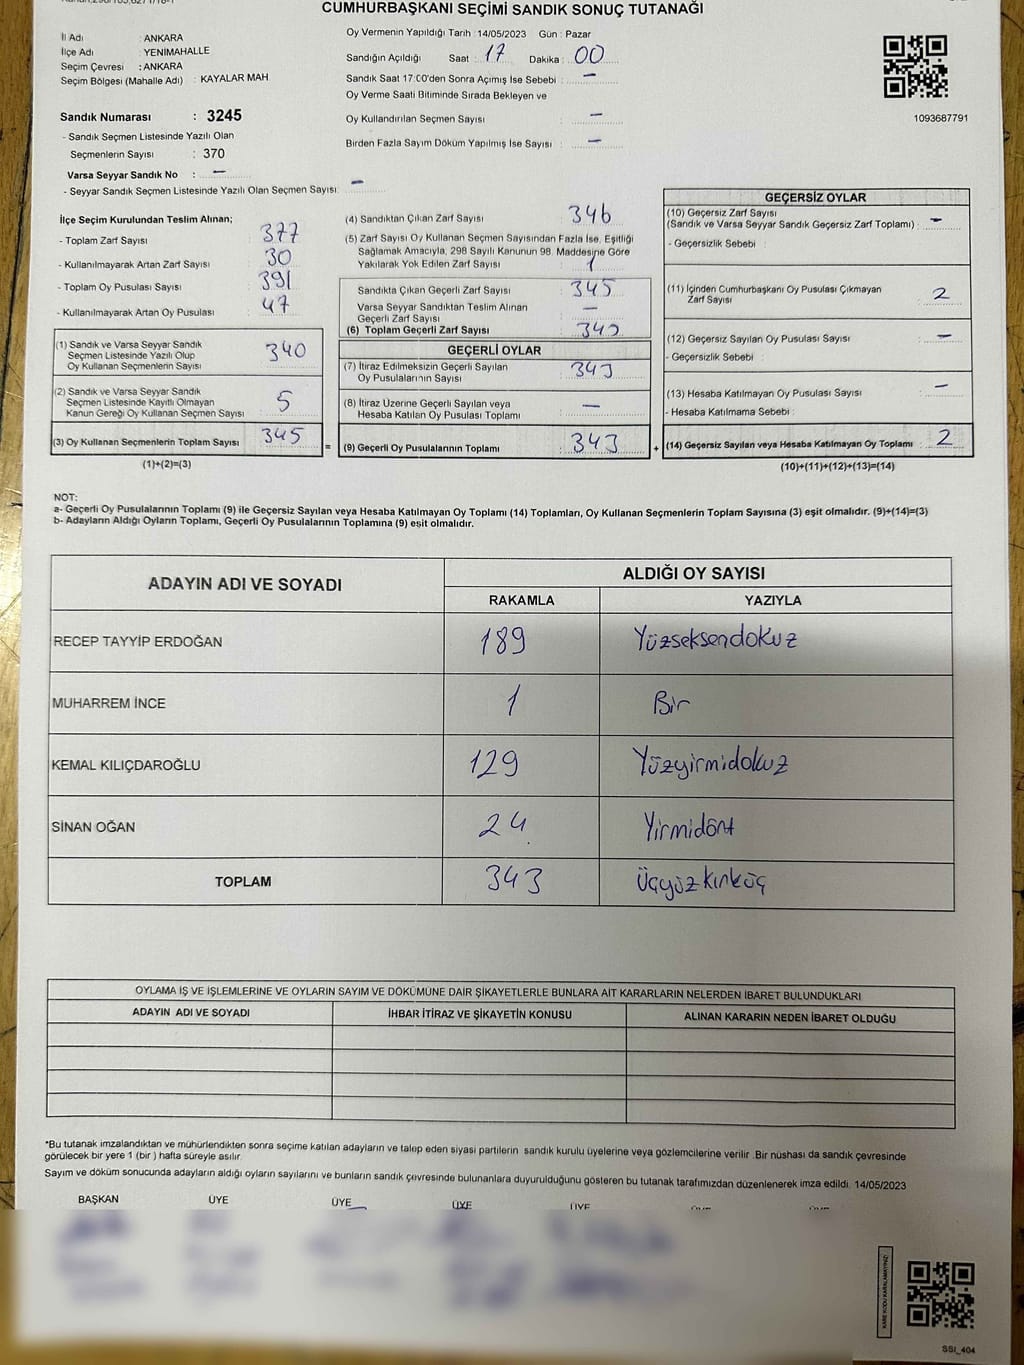 CUMHURBAŞKANI SEÇİMİ SANDIK SONUÇ TUTANAĞI
İl Adı : ANKARA
İlçe Adı : YENİMAHALLE
Seçim Çevresi : ANKARA
Seçim Bölgesi (Mahalle Adı) : KAYALAR MAH
Sandık Numarası : 3245
- Sandık Seçmen Listesinde Yazılı Olan
Seçmenlerin Sayısı : 370
Varsa Seyyar Sandık No : -
- Seyyar Sandık Seçmen Listesinde Yazılı Olan Seçmen Sayısı: -
Oy Vermenin Yapıldığı Tarih : 14/05/2023 Gün : Pazar
Sandığın Açıldığı Saat : 17 Dakika : 00
Sandık Saat 17:00'den Sonra Açımış İse Sebebi : -
Oy Verme Saati Bitiminde Sırada Bekleyen ve
Oy Kullandırılan Seçmen Sayısı : -
Birden Fazla Sayım Döküm Yapılmış İse Sayısı : -
1093687791
İlçe Seçim Kurulundan Teslim Alınan;
- Toplam Zarf Sayısı : 377
- Kullanılmayarak Artan Zarf Sayısı : 30
- Toplam Oy Pusulası Sayısı : 391
- Kullanılmayarak Artan Oy Pusulası : 47
(1) Sandık ve Varsa Seyyar Sandık
Seçmen Listesinde Yazılı Olup
Oy Kullanan Seçmenlerin Sayısı : 340
(2) Sandık ve Varsa Seyyar Sandık
Seçmen Listesinde Kayıtlı Olmayan
Kanun Gereği Oy Kullanan Seçmen Sayısı : 5
(3) Oy Kullanan Seçmenlerin Toplam Sayısı : 345 =
(1)+(2)=(3)
(4) Sandıktan Çıkan Zarf Sayısı : 346
(5) Zarf Sayısı Oy Kullanan Seçmen Sayısından Fazla İse, Eşitliği
Sağlamak Amacıyla, 298 Sayılı Kanunun 98. Maddesine Göre
Yakılarak Yok Edilen Zarf Sayısı : 1
Sandıkta Çıkan Geçerli Zarf Sayısı : 345
Varsa Seyyar Sandıktan Teslim Alınan
Geçerli Zarf Sayısı : -
(6) Toplam Geçerli Zarf Sayısı : 345
GEÇERLİ OYLAR
(7) İtiraz Edilmeksizin Geçerli Sayılan
Oy Pusulalarının Sayısı : 343
(8) İtiraz Üzerine Geçerli Sayılan veya
Hesaba Katılan Oy Pusulası Toplamı : -
(9) Geçerli Oy Pusulalarının Toplamı : 343 +
GEÇERSİZ OYLAR
(10) Geçersiz Zarf Sayısı
(Sandık ve Varsa Seyyar Sandık Geçersiz Zarf Toplamı) : -
- Geçersizlik Sebebi :
(11) İçinden Cumhurbaşkanı Oy Pusulası Çıkmayan
Zarf Sayısı : 2
(12) Geçersiz Sayılan Oy Pusulası Sayısı : -
- Geçersizlik Sebebi :
(13) Hesaba Katılmayan Oy Pusulası Sayısı : -
- Hesaba Katılmama Sebebi :
(14) Geçersiz Sayılan veya Hesaba Katılmayan Oy Toplamı : 2
(10)+(11)+(12)+(13)=(14)
NOT:
a- Geçerli Oy Pusulalarının Toplamı (9) ile Geçersiz Sayılan veya Hesaba Katılmayan Oy Toplamı (14) Toplamları, Oy Kullanan Seçmenlerin Toplam Sayısına (3) eşit olmalıdır. (9)+(14)=(3)
b- Adayların Aldığı Oyların Toplamı, Geçerli Oy Pusulalarının Toplamına (9) eşit olmalıdır.
ADAYIN ADI VE SOYADI
ALDIĞI OY SAYISI
RAKAMLA YAZIYLA
RECEP TAYYİP ERDOĞAN 189 Yüzseksendokuz
MUHARREM İNCE 1 Bir
KEMAL KILIÇDAROĞLU 129 Yüzyirmidokuz
SİNAN OĞAN 24 Yirmidört
TOPLAM 343 Üçyüzkırküç
OYLAMA İŞ VE İŞLEMLERİNE VE OYLARIN SAYIM VE DÖKÜMÜNE DAİR ŞİKAYETLERLE BUNLARA AİT KARARLARIN NELERDEN İBARET BULUNDUKLARI
ADAYIN ADI VE SOYADI İHBAR İTİRAZ VE ŞİKAYETİN KONUSU ALINAN KARARIN NEDEN İBARET OLDUĞU
*Bu tutanak imzalandıktan ve mühürlendikten sonra seçime katılan adayların ve talep eden siyasi partilerin sandık kurulu üyelerine veya gözlemcilerine verilir .Bir nüshası da sandık çevresinde
görülecek bir yere 1 (bir ) hafta süreyle asılır.
Sayım ve döküm sonucunda adayların aldığı oyların sayılarını ve bunların sandık çevresinde bulunanlara duyurulduğunu gösteren bu tutanak tarafımızdan düzenlenerek imza edildi. 14/05/2023
BAŞKAN ÜYE ÜYE ÜYE ÜYE
KARE KODU KARALAMAYINIZ!
SSI_404